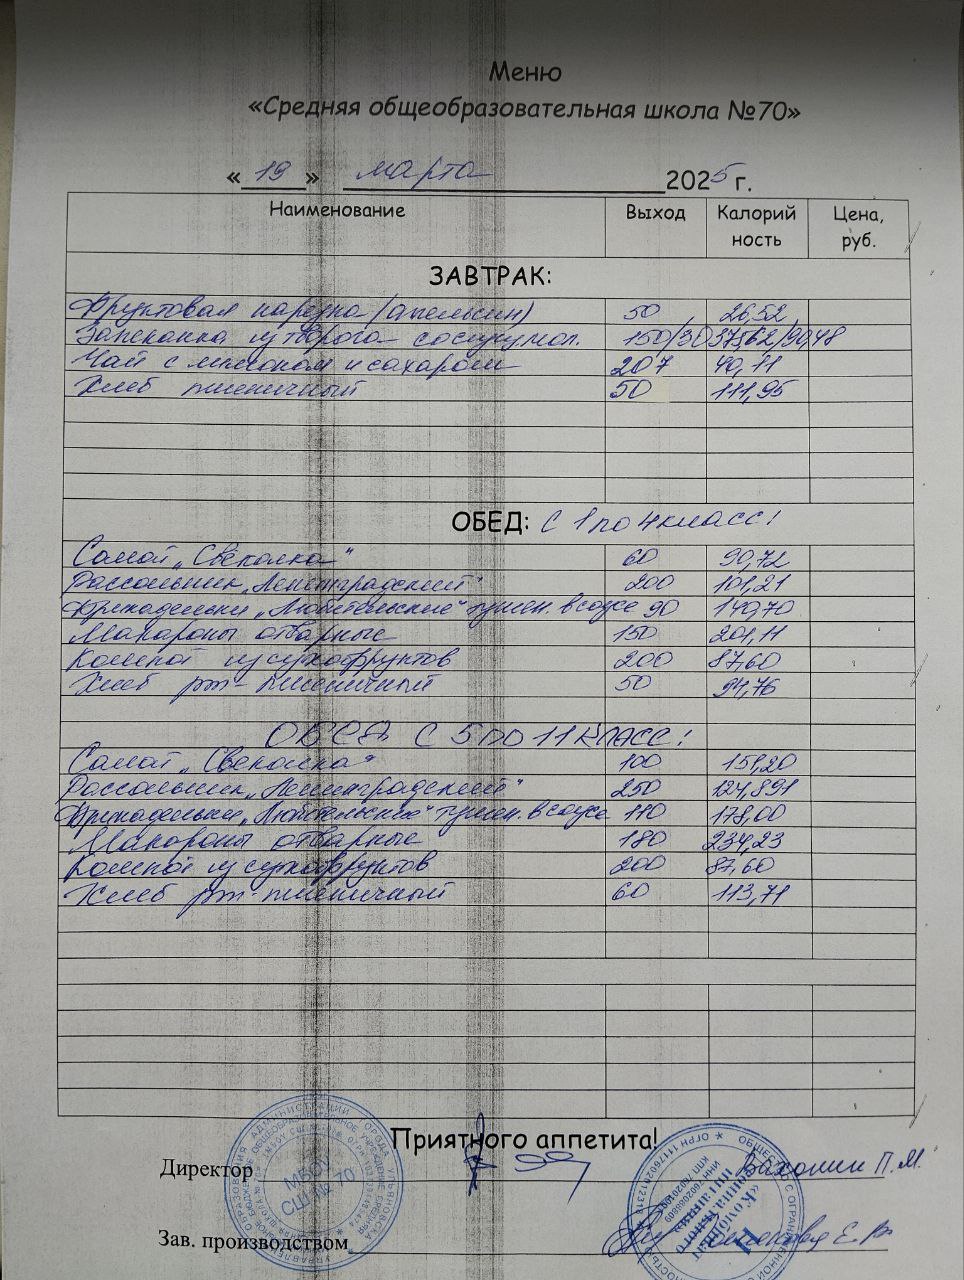 Меню
«Средняя общеобразовательная школа №70»
«19» марта 2025 г.
Наименование Выход Калорий Цена,
ность руб.
ЗАВТРАК:
Фруктовая нарезка (апельсин) 50 26,52
Запеканка из творога сосиской мол. 150/30 375,62/90,48
Чай с лимоном и сахаром 207 40,11
Хлеб пшеничный 50 111,95
ОБЕД: С 1 по 4 класс!
Салат „Свеколка" 60 90,72
Рассольник „Ленинградский" 200 101,21
Фрикадельки „Любительские" тушен. в соусе 90 140,70
Макароны отварные 150 201,11
Компот из сухофруктов 200 87,60
Хлеб рж-пшеничный 50 94,76
ОБЕД С 5 по 11 класс!
Салат „Свеколка" 100 151,20
Рассольник „Ленинградский" 250 124,891
Фрикадельки „Любительские" тушен. в соусе 110 178,00
Макароны отварные 180 234,23
Компот из сухофруктов 200 87,60
Хлеб рж-пшеничный 60 113,71
Приятного аппетита!
Директор П.М.
МБОУ
СШ № 70
Зав. производством Е.В.